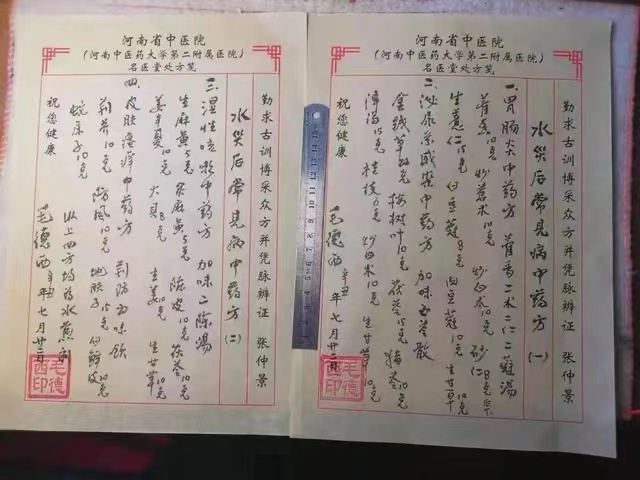 河南省中医院
(河南中医药大学第二附属医院)
名医堂处方笺
勤求古训博采众方并凭脉辨证 张仲景
水灾后常见病中药方(一)
一.胃肠炎中药方 藿香二术二仁二蔻汤
藿香10克 炒苍术10克 炒白术10克 砂仁8克
生薏仁15克 白豆蔻8克 肉豆蔻 生甘草
二.泌尿系感染中药方 加味五苓散
金钱草 10克 茯苓15克 猪苓10克
泽泻15克 桂枝6克 炒白术10克 生甘草10克
毛德西 辛丑 七月廿二日
祝您健康
毛德西印
河南省中医院
(河南中医药大学第二附属医院)
名医堂处方笺
勤求古训博采众方并凭脉辨证 张仲景
水灾后常见病中药方(二)
三.湿性咳嗽中药方 加味二陈汤
生麻黄5克 炙麻黄5克 陈皮10克 茯苓10克
姜半夏10克 大贝8克 生姜10克 生甘草10克
四.皮肤瘙痒中药方 荆防五味饮
荆芥10克 防风10克 地肤子15克 白鲜皮10克
蛇床子10克 以上四方均为水煎剂
毛德西 辛丑 七月廿二日
祝您健康
毛德西印